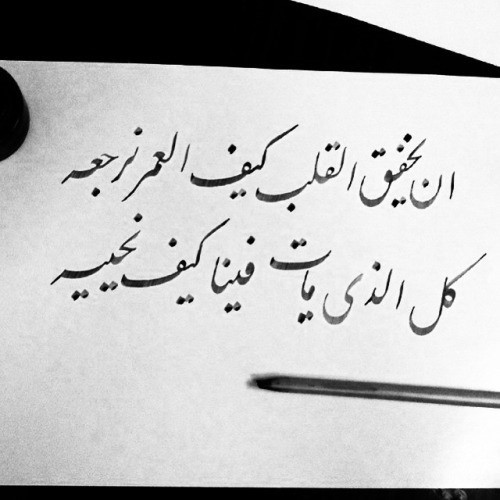 ان يخفق القلب كيف العمر نرجعه
كل الذي مات فينا كيف نحييه